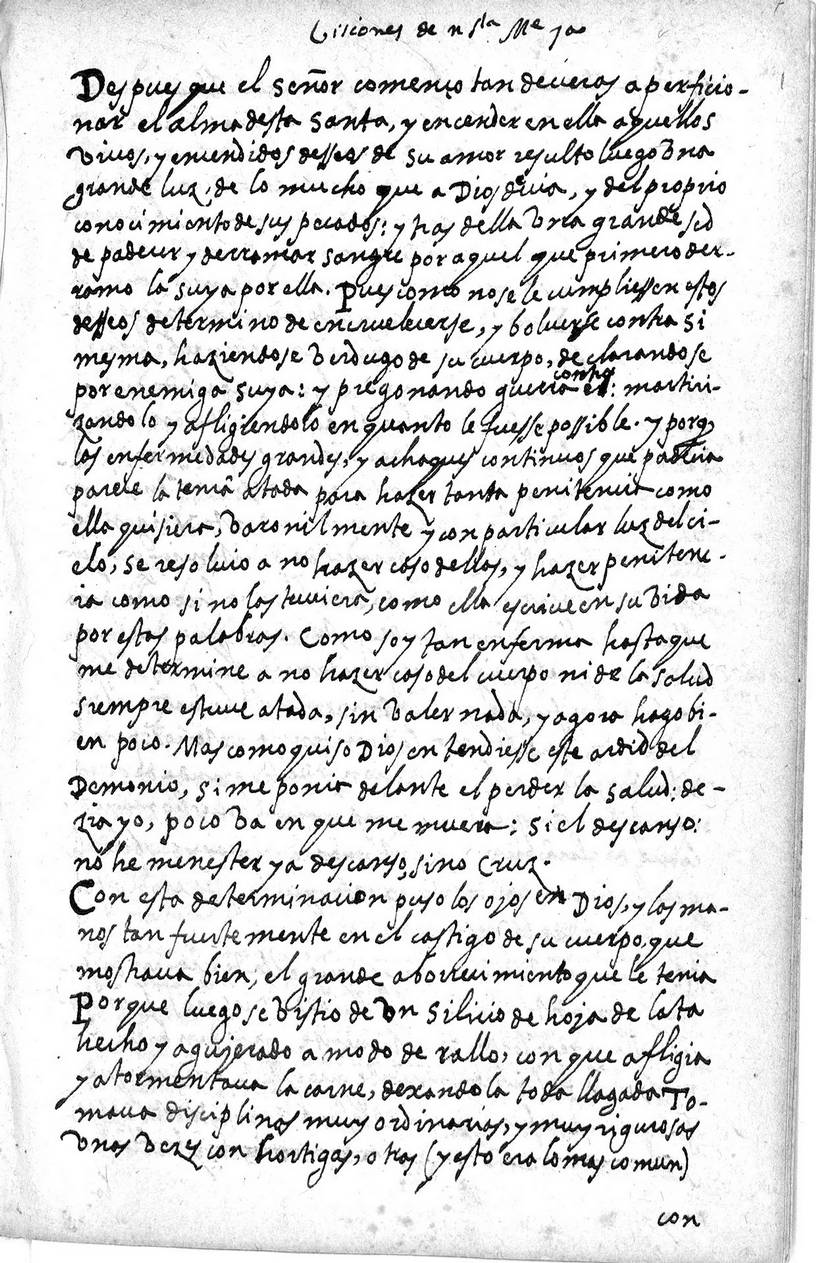 Visiones de nsta Me
Despues que el Señor començo tan deveras a perficio-
nar el alma desta Santa, y encender en ella aquellos
vivos, y encendidos desseos de su amor resulto luego vna
grande luz, de lo mucho que a Dios devia, y del proprio
conocimiento de sus pecados: y tras della vna grande sed
de padecer y derramar sangre por aquel que primero der-
ramo la suya por ella. Pues como no se le cumpliessen estos
desseos determino de encruelecerse, y bolverse contra si
mesma, haziendose verdugo de su cuerpo, declarandose
por enemiga suya: y pregonando guerra contra el: martiri-
zandolo y afligiendolo en quanto le fuesse possible. y porq
las enfermedades grandes, y achaques continuos que padecia
parece la tenia atada para hazer tanta penitencia como
ella quisiera, varonilmente y con particular luz del ci-
elo, se resoluio a no hazer caso dellas, y hazer penitenc-
ia como si no las tuviera, como ella escrive en su vida
por estas palabras. Como soy tan enferma hasta que
me determine a no hazer caso del cuerpo ni de la salud
siempre estuve atada, sin valer nada, y agora hago bi-
en poco. Mas como quiso Dios entendiesse este ardid del
Demonio, si me ponia delante el perder la salud: de-
zia yo, poco va en que me muera: Si el descanso:
no he menester ya descanso, sino Cruz.
Con esta determinacion puso los ojos en Dios, y las ma-
nos tan fuertemente en el castigo de su cuerpo, que
mostraua bien, el grande aborrecimiento que le tenia
Porque luego se vistio de vn Silicio de hoja de lata
hecho y agujerado a modo de rallo, con que afligia
y atormentaua la carne, dexandola toda llagada To-
maua disciplinas muy ordinarias, y muy rigurosas
vnas vezes con hortigas, otras (y esto era lo mas comun)
con